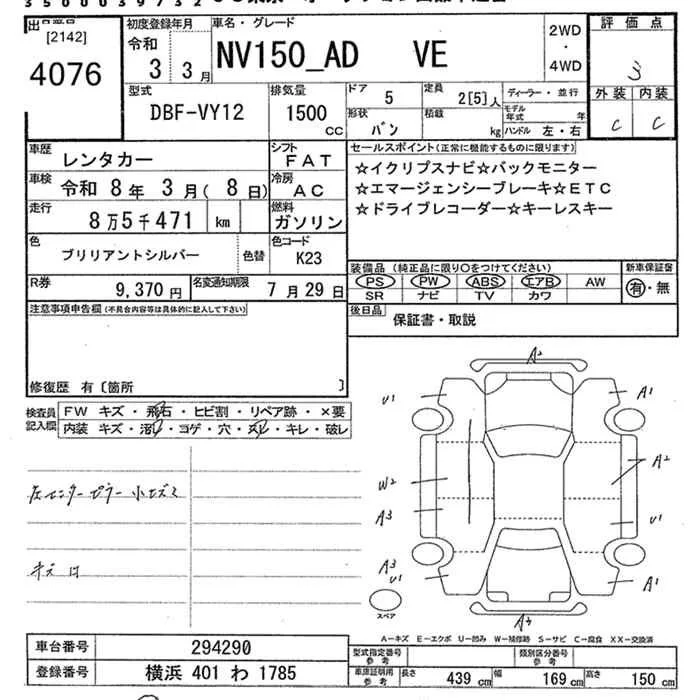 3500039732
出品番号
[2142]
4076
初度登録年月
令和
3 3月
車名・グレード
NV150_AD VE
2WD
・
4WD
評価点
3
外装 内装
C C
型式
DBF-VY12
排気量
1500
CC
ドア
5
定員
2[5]人
形状
バン
積載
kg
ディーラー・並行
モデル年式 年
ハンドル 左・右
車歴
レンタカー
シフト
FAT
車検
令和 8年 3月( 8日)
冷房
AC
走行
8万5千471 km
燃料
ガソリン
色
ブリリアントシルバー
色替
色コード
K23
R券
9,370円
名変通知期限
7月29日
セールスポイント(正常に機能するものに限ります)
☆イクリプスナビ☆バックモニター
☆エマージェンシーブレーキ☆ETC
☆ドライブレコーダー☆キーレスキー
装備品(純正品に限り○をつけてください)
PS PW ABS エアB AW
SR ナビ TV カワ
新車保証書
有・無
後日品
保証書・取説
注意事項申告欄(不具合内容等は具体的に記入して下さい)
修復歴 有〔箇所 〕
検査員記入欄
FW キズ・飛石・ヒビ割・リペア跡・×要
内装 キズ・汚れ・コゲ・穴・ヌレ・キレ・破レ
左センターピラー小エズミ
A2
U1
A1
W2
A2
A3
U1
A3
U1
A1
スペア
A3
A―キズ E―エクボ U―凹み W―補修跡 S―サビ C―腐食 XX―交換済
車台番号
294290
登録番号
横浜 401 わ 1785
型式指定番号
参考
類別区分番号
参考
車庫証明用
参考
長さ 439 cm
幅 169 cm
高さ 150 cm